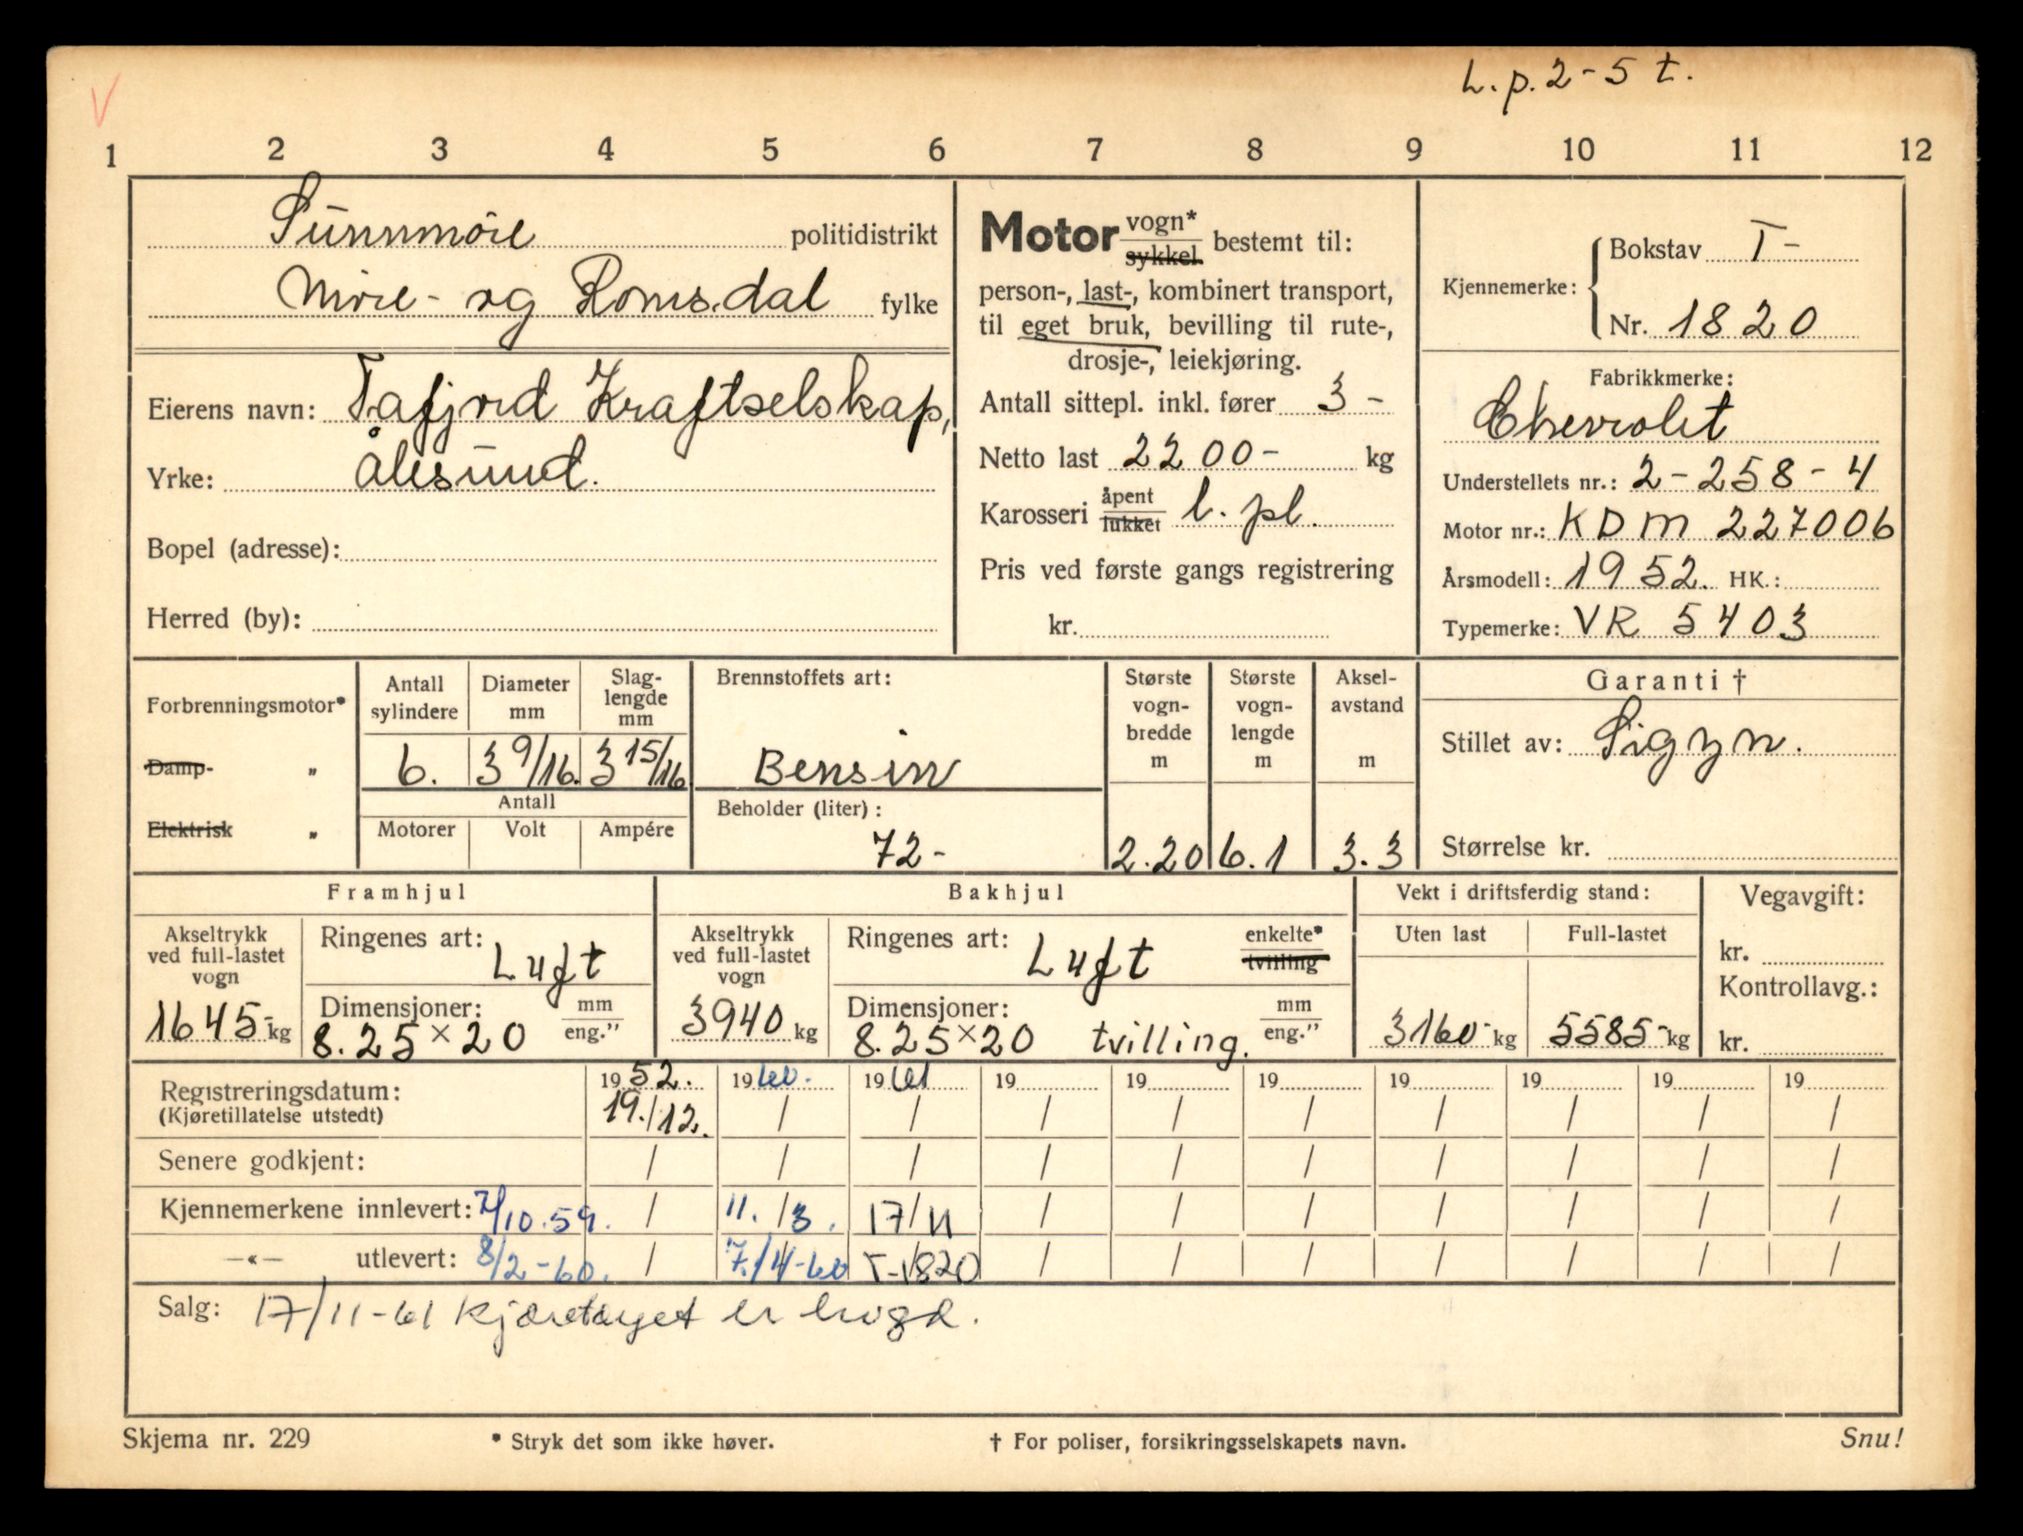 L.p. 2-5 t.
V
1 2 3 4 5 6 7 8 9 10 11 12
Sunnmøre politidistrikt
Møre- og Romsdal fylke
Eierens navn: Tafjord Kraftselskap,
Yrke: Ålesund.
Bopel (adresse):
Herred (by):
Motor vogn* sykkel bestemt til:
person-, last-, kombinert transport,
til eget bruk, bevilling til rute-,
drosje-, leiekjøring.
Antall sittepl. inkl. fører 3 -
Netto last 2200- kg
Karosseri åpent lukket l. pl.
Pris ved første gangs registrering
kr.
Kjennemerke: Bokstav T-
Nr. 1820
Fabrikkmerke:
Chevrolet
Understellets nr.: 2-258-4
Motor nr.: KDM 227006
Årsmodell: 1952. HK.:
Typemerke: VR 5403
Forbrenningsmotor*
Damp- „
Elektrisk „
Antall sylindere
6.
Diameter mm
3 9/16.
Slag-lengde mm
3 15/16
Antall
Motorer Volt Ampére
Brennstoffets art:
Bensin
Beholder (liter):
72-
Største vogn-bredde m
2.20
Største vogn-lengde m
6.1
Aksel-avstand m
3.3
Garanti †
Stillet av: Sigyn.
Størrelse kr.
Framhjul
Akseltrykk ved full-lastet vogn
1645- kg
Ringenes art: Luft
Dimensjoner: mm eng.”
8.25×20
Bakhjul
Akseltrykk ved full-lastet vogn
3940 kg
Ringenes art: Luft enkelte* tvilling
Dimensjoner: mm eng.”
8.25×20 tvilling.
Vekt i driftsferdig stand:
Uten last Full-lastet
3160- kg 5585- kg
Vegavgift:
kr.
Kontrollavg.:
kr.
Registreringsdatum: 1952. 1960. 1961 19 19 19 19 19 19 19
(Kjøretillatelse utstedt) 19./12. / / / / / / / / /
Senere godkjent: / / / / / / / / / /
Kjennemerkene innlevert: 2/10.59. / 11./3. 17/11 / / / / / / /
—«— utlevert: 8/2-60. / 7./4-60 T-1820 / / / / / / /
Salg: 17/11-61 kjøretøyet er hugd.
Skjema nr. 229 * Stryk det som ikke høver. † For poliser, forsikringsselskapets navn. Snu!